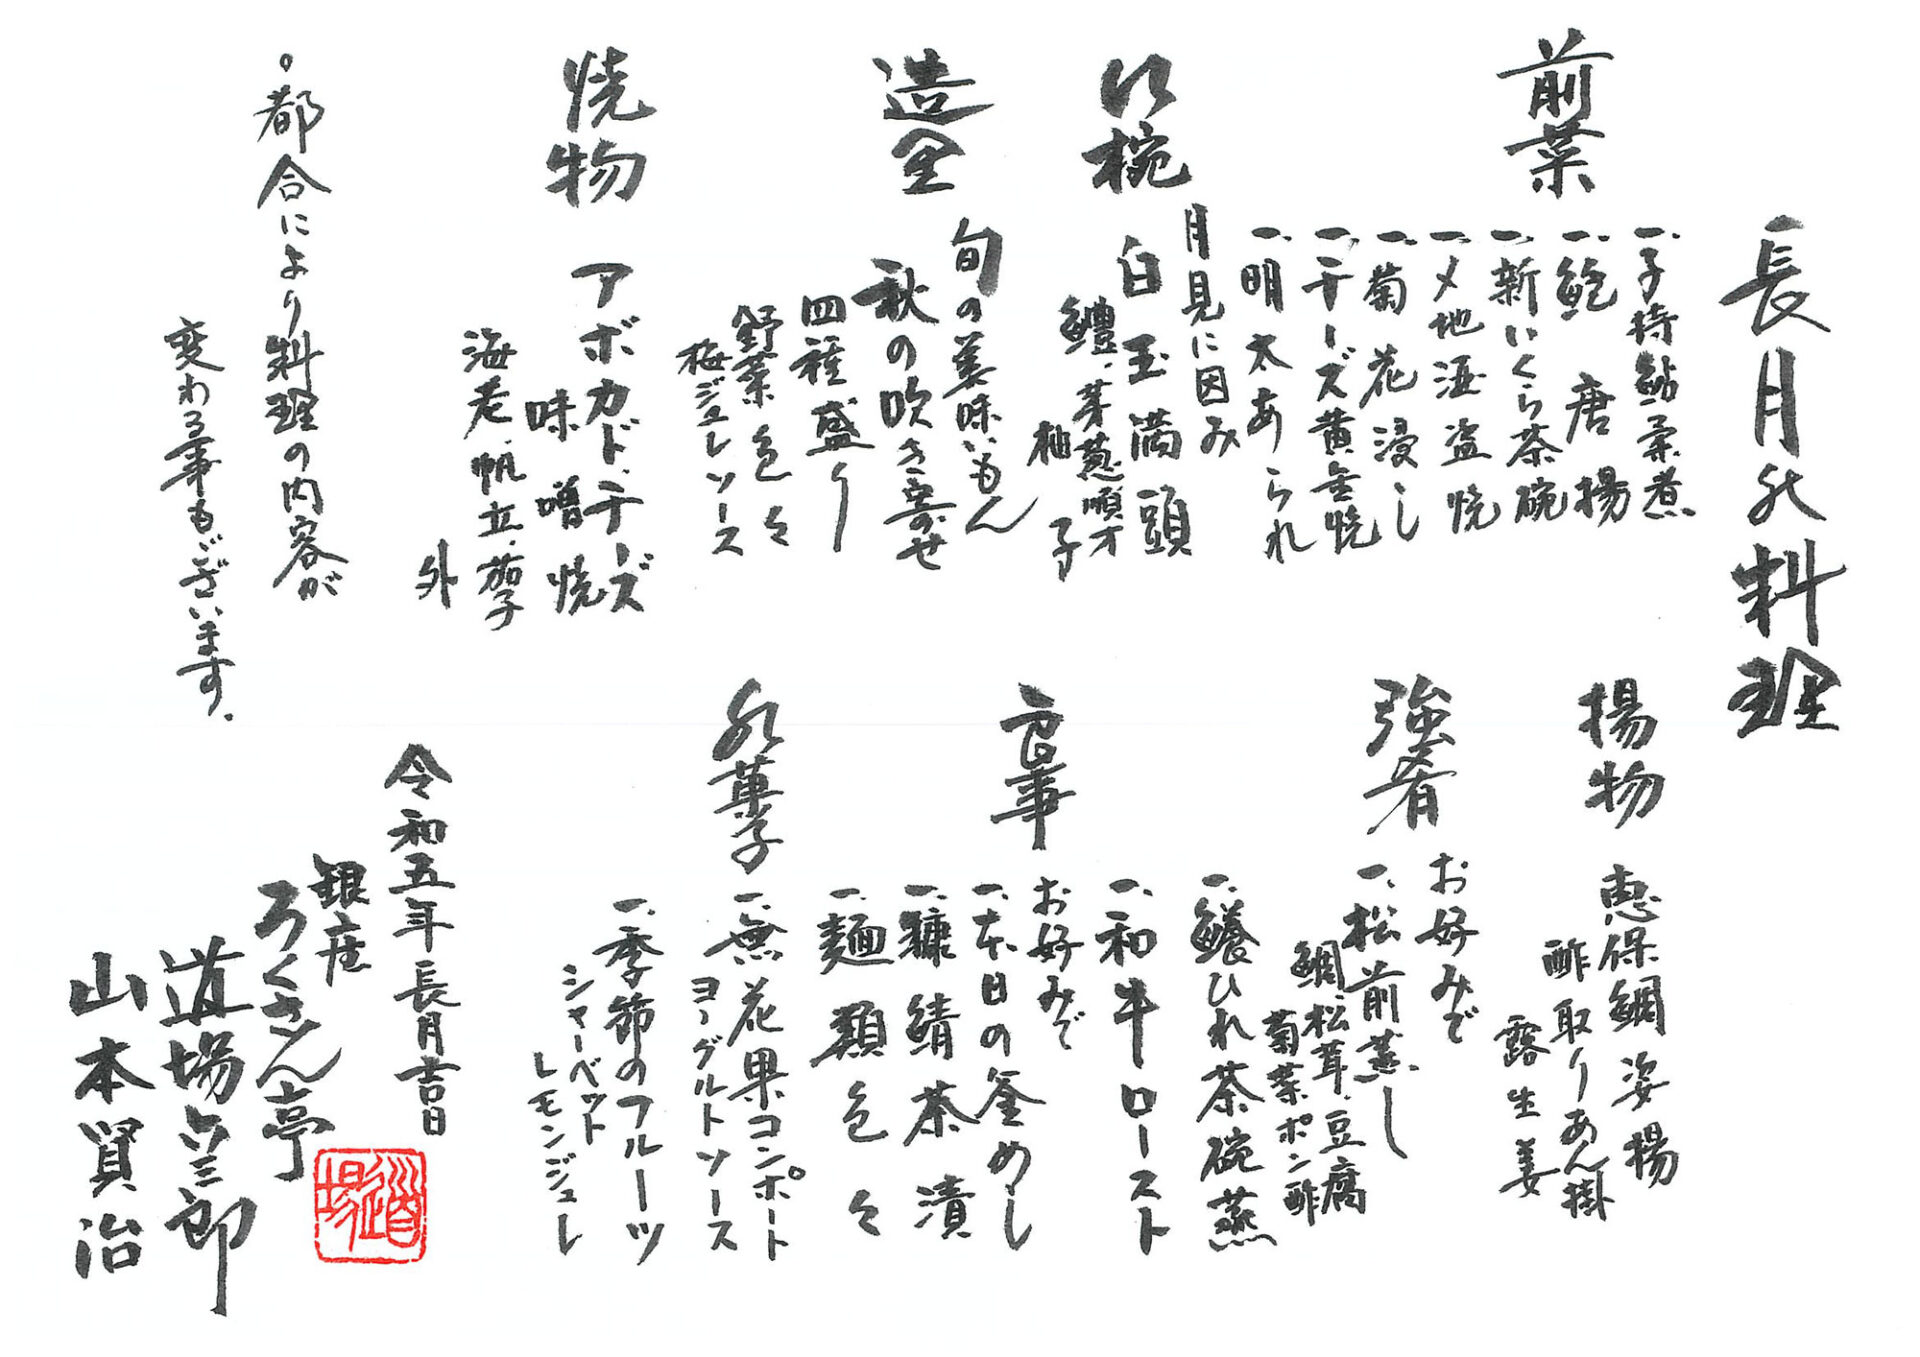 長月の料理
前菜
一、子持鮎柔煮
一、鮑唐揚
一、新いくら茶碗
一、〆地酒盗焼
一、菊花浸し
一、チーズ黄金焼
一、明太あられ
口椀
月見に因み
白玉満頭
鱧、芽葱、順才
柚子
造里
旬の美味いもん
秋の吹き寄せ
四種盛り
野菜色々
梅ジュレソース
焼物
アボカド、チーズ
味噌焼
海老、帆立、茄子
外
○都合により料理の内容が
変わる事もございます。
揚物
恵保鯛姿揚
酢取りあん掛
露生姜
強肴
お好みで
一、松前蒸し
鯛、松茸、豆腐
菊菜、ポン酢
一、鱶ひれ茶碗蒸
一、和牛ロースト
食事
お好みで
一、本日の釜めし
一、糠鯖茶漬
一、麺類色々
水菓子
一、無花果コンポート
ヨーグルトソース
一、季節のフルーツ
シャーベット
レモンジュレ
令和五年長月吉日
銀座
ろくさん亭
道場六三郎
山本賢治
道場